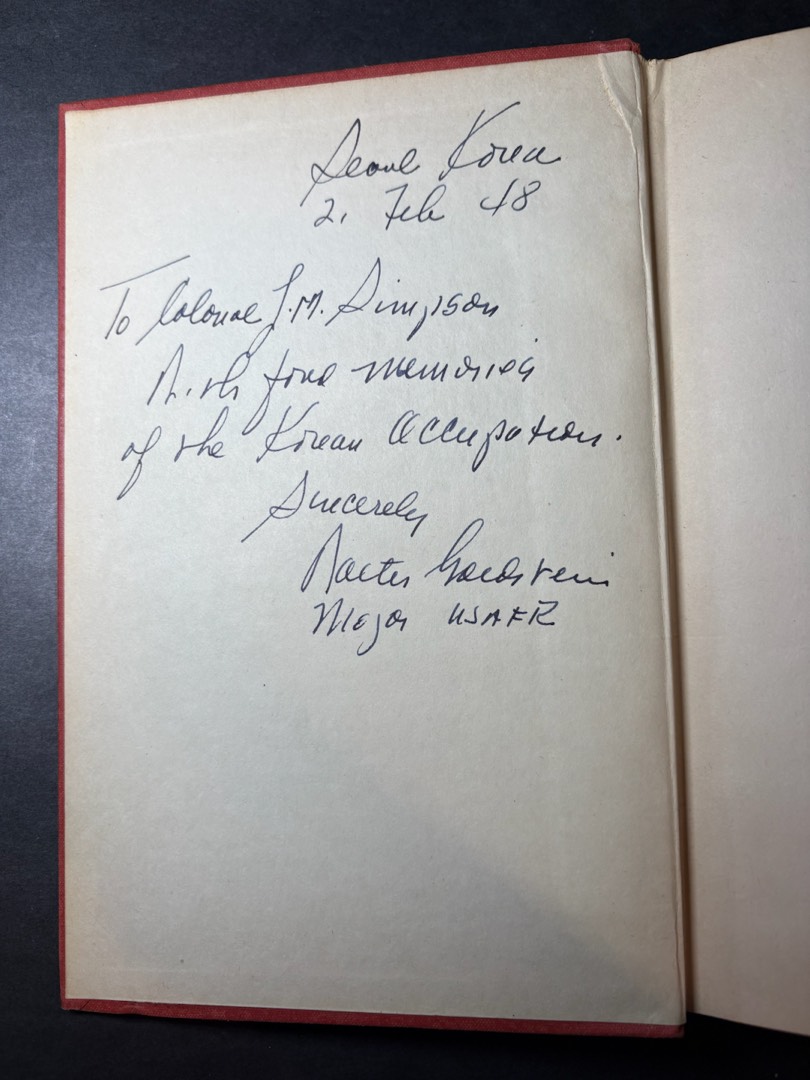 Seoul Korea
2. Feb 48
To Colonel J.M. Simpson
With fond memories
of the Korean Occupation.
Sincerely
Walter Goldstein
Major USAFR